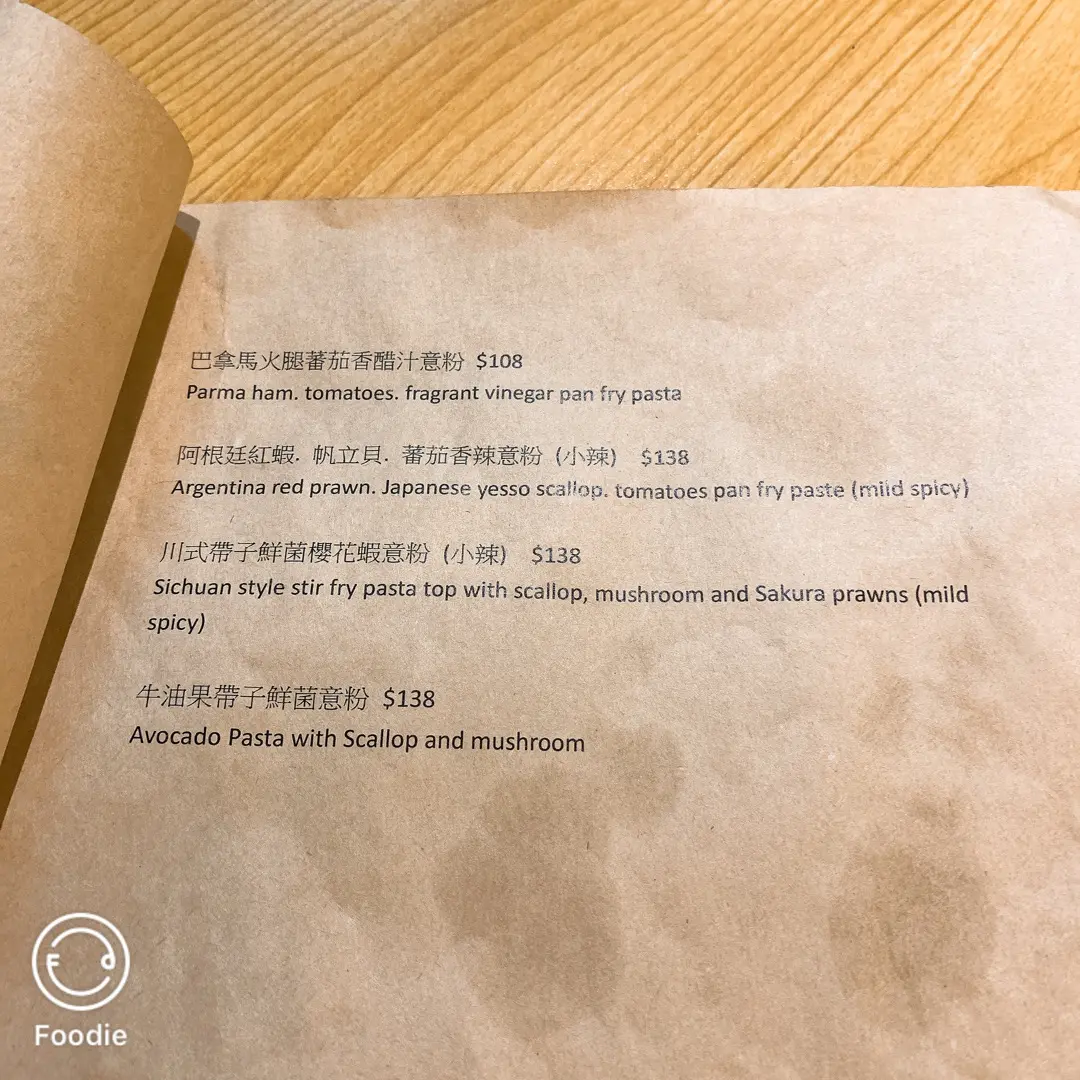 巴拿馬火腿蕃茄香醋汁意粉 $108
Parma ham. tomatoes. fragrant vinegar pan fry pasta
阿根廷紅蝦. 帆立貝. 蕃茄香辣意粉 (小辣) $138
Argentina red prawn. Japanese yesso scallop. tomatoes pan fry paste (mild spicy)
川式帶子鮮菌櫻花蝦意粉 (小辣) $138
Sichuan style stir fry pasta top with scallop, mushroom and Sakura prawns (mild
spicy)
牛油果帶子鮮菌意粉 $138
Avocado Pasta with Scallop and mushroom
Foodie